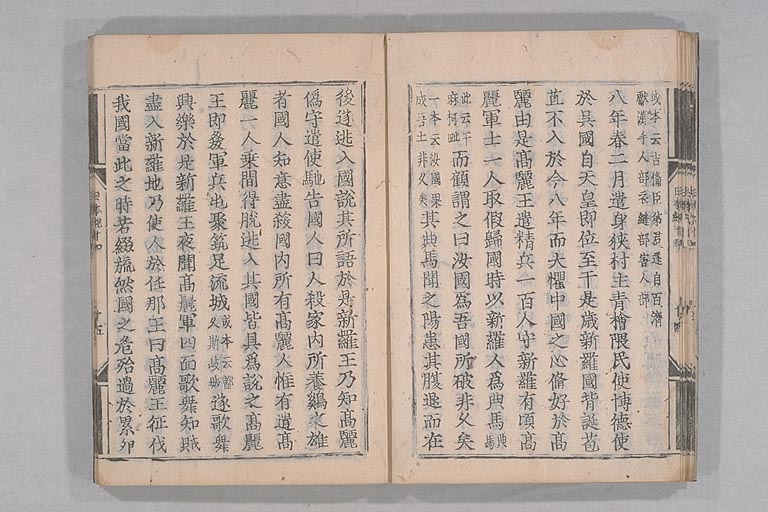 或本云吉備臣弟君還自百濟
獻漢手人部衣縫部宍人部
八年春二月遣身狹村主青檜隈民使博德使
於吳國自天皇即位至于是歲新羅國背誕苞
苴不入於今八年而大懼中國之心脩好於高
麗由是高麗王遣精兵一百人守新羅有頃高
麗軍士一人取假歸國時以新羅人爲典馬典馬
此云于
麻柯毗而顧謂之曰汝國爲吾國所破非久矣
一本云汝國果
成吾土非久矣其典馬聞之陽患其腹退而在
後遂逃入國說其所語於是新羅王乃知高麗
僞守遣使馳告國人曰人殺家內所養鷄之雄
者國人知意盡殺國內所有高麗人惟有遺高
麗一人乘間得脫逃入其國皆具爲說之高麗
王即發軍兵屯聚筑足流城或本云都
久斯岐城遂歌儛
興樂於是新羅王夜聞高麗軍四面歌儛知賊
盡入新羅地乃使人於任那王曰高麗王征伐
我國當此之時若綴旒然國之危殆過於累卵